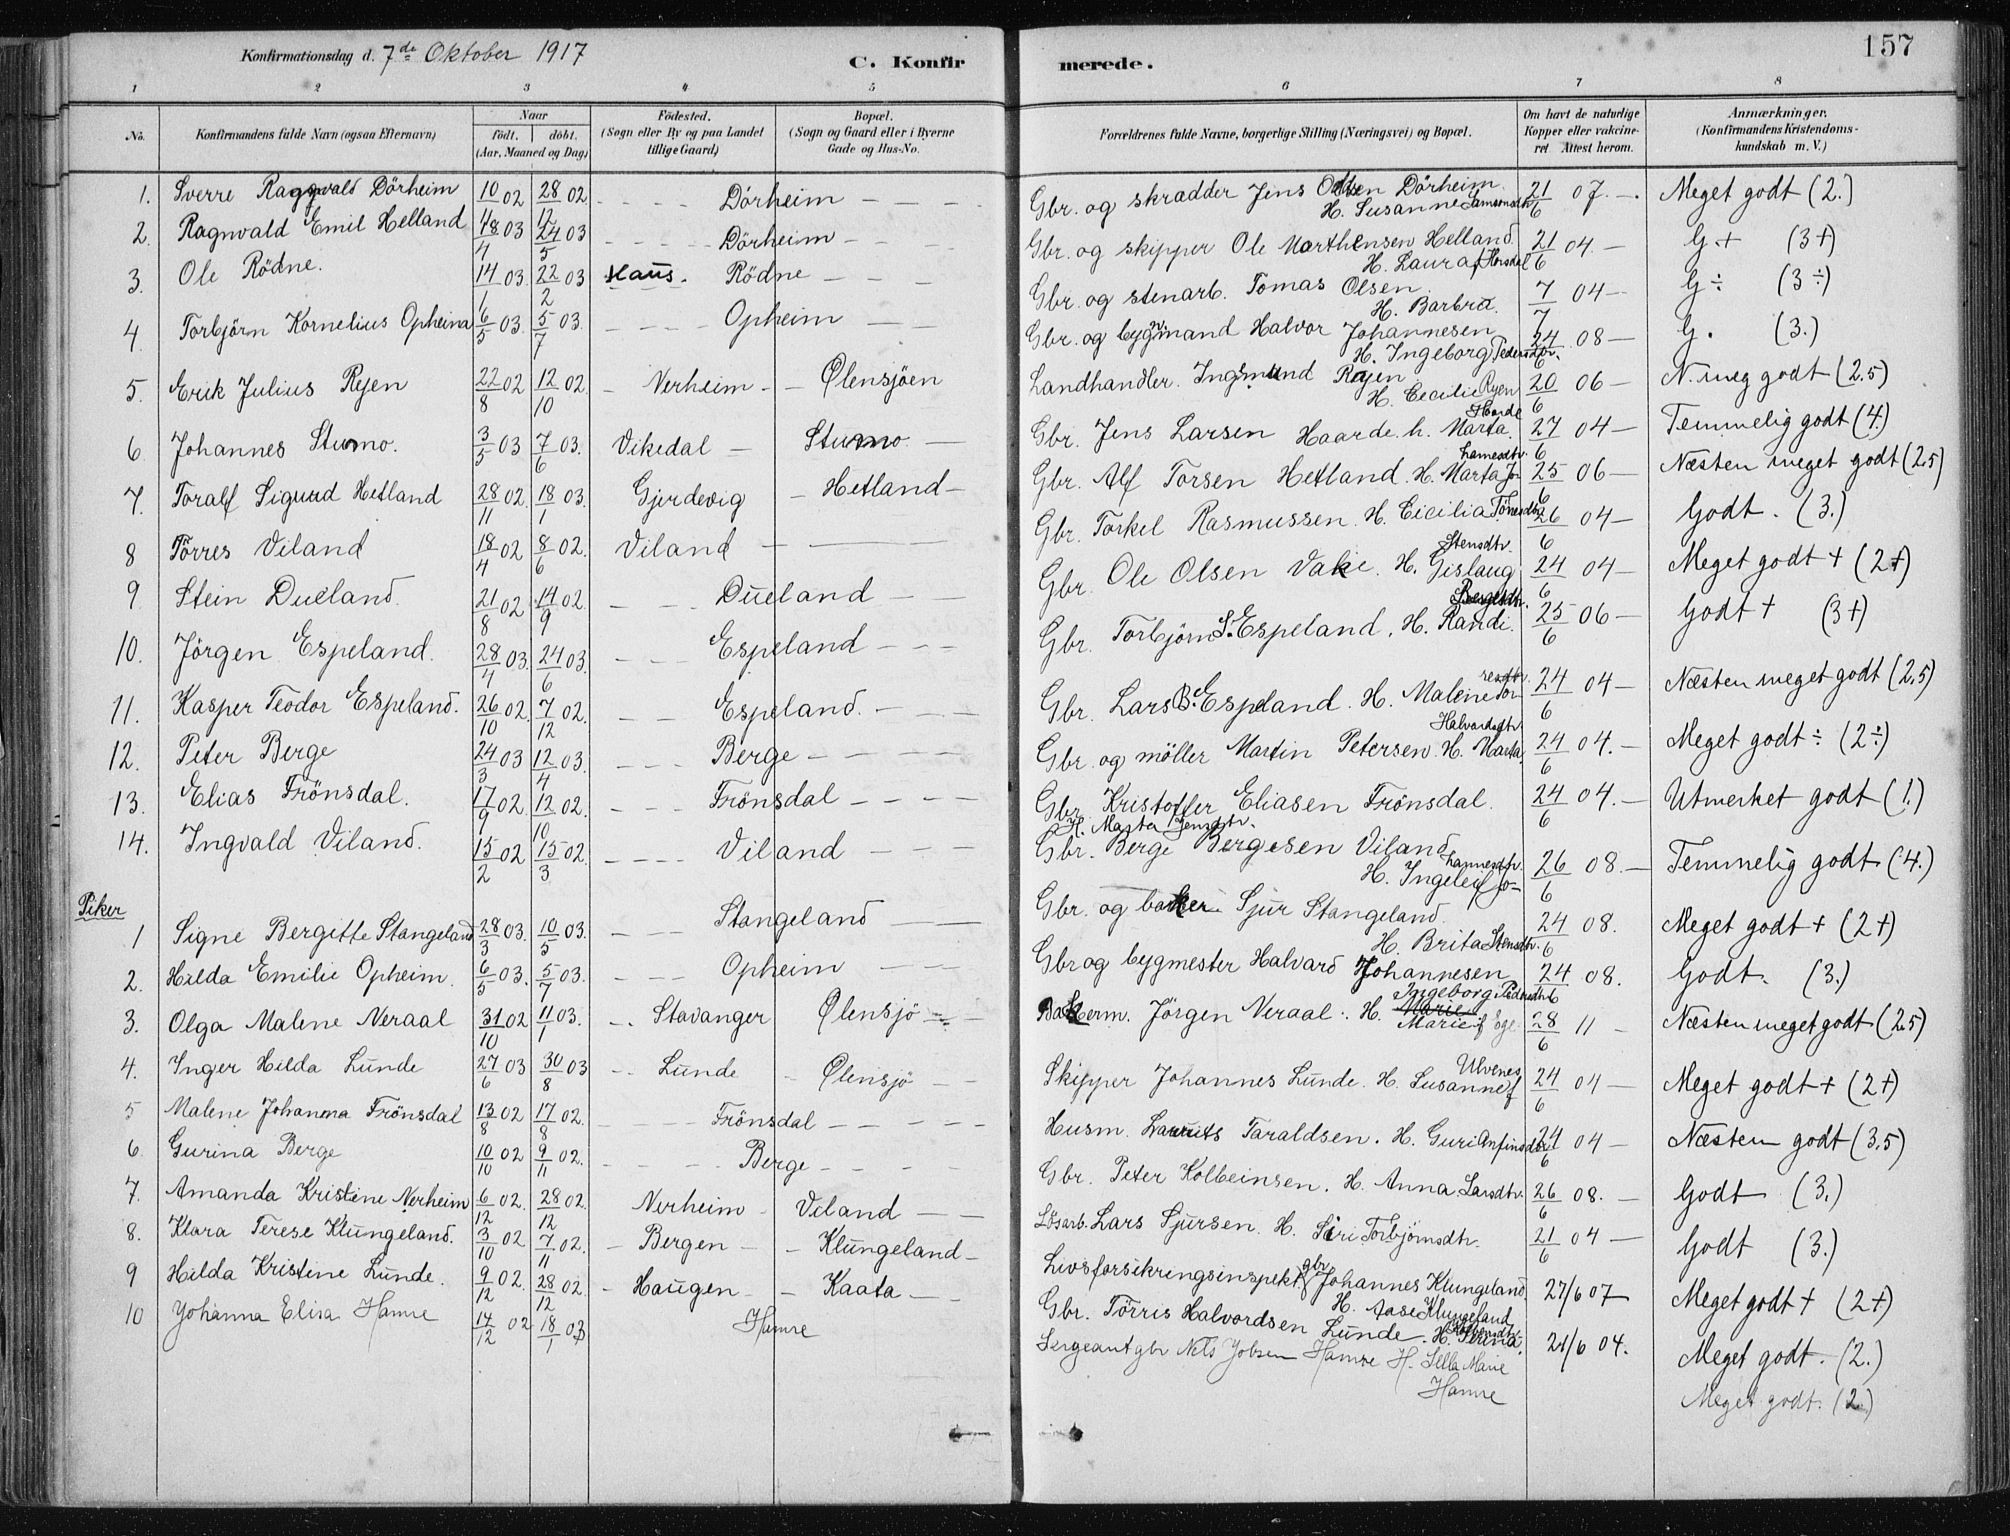 157
Konfirmationsdag d. 7de Oktober 1917
C. Konfirmerede.
1 2 3 4 5 6 7 8
No. Konfirmandens fulde Navn (ogsaa Efternavn) Naar født. døbt. (Aar, Maaned og Dag) Fødested. (Sogn eller By og paa Landet tillige Gaard) Bopæl. (Sogn og Gaard eller i Byerne Gade og Hus-No. Forældrenes fulde Navne, borgerlige Stilling (Næringsvei) og Bopæl. Om havt de naturlige Kopper eller vakcineret. Attest herom. Anmærkninger. (Konfirmandens Kristendomskundskab m. V.)
1. Sverre Ragnvald Dörheim 10 02 28/12 02 Dörheim Gbr. og skrædder Jens Olsen Dörheim. H. Susanne 21/6 07. Meget godt (2.)
2. Ragnvald Emil Helland 18/4 03 24/5 03 Dörheim Gbr. og skipper Ole Marthensen Helland. H. Laura 21/6 04. G + (3+)
3. Ole Rödne. 14/1 03. 22/2 03 Haus. Rödne Gbr. og stenarb. Tomas Olsen. H. Barbra 7/7 04 G ÷ (3÷)
4 Torbjörn Kornelius Opheim 6/5 03. 5/7 03. Opheim Gbr. og bygmand Halvor Johannesen H. Ingeborg Pedersdtr. 24/6 08 G. (3.)
5. Erik Julius Ryen 22/8 02 12/10 02. Nerheim Ølensjöen Landhandler. Ingemund Ryen H. Cecilie Ryen 20/6 06 N. meg godt (2.5)
6 Johannes Stumo. 3/5 03 7/6 03. Vikedal Stumo Gbr. Jens Larsen Haarde. h. Marta Haarde 27/6 04 Temmelig godt (4.)
7. Toralf Sigurd Hetland 28/11 02 18/1 03. Gjerdevig Hetland Gbr. Alf Torsen Hetland. H. Marta Jo- 25/6 06 Næsten meget godt (2.5)
8 Törres Viland 18/4 02 8/6 02. Viland Gbr. Torkel Rasmussen. H. Cicilia Tönesdtr. 26/6 04 Godt. (3.)
9. Stein Dueland. 21/8 02 14/9 02. Dueland Gbr. Ole Olsen Vake. H. Gislaug Stensdtr. 24/6 04 Meget godt + (2+)
10. Jörgen Espeland. 28/4 03. 24/6 03. Espeland Gbr. Torbjörn S. Espeland, H. Randi 25/6 06 Godt + (3+)
11. Kasper Teodor Espeland. 26/10 02. 7/12 02. Espeland. Gbr. Lars B. Espeland. H. Malene 24/6 04 Næsten meget godt (2.5)
12. Peter Berge 24/3 03 12/4 03. Berge Gbr. og möller Martin Petersen. H. Marta Halvardsdtr. 24/6 04. Meget godt ÷ (2÷)
13. Elias Frönsdal. 17/9 02 12/10 02. Frönsdal Gbr. Kristoffer Eliasen Frönsdal. H. Marta Jensdtr. 24/6 04. Utmerket godt (1.)
14. Ingvald Viland. 15/2 02 15/3 02. Viland Gbr. Berge Bergesen Viland H. Ingeleif Jo- 26/6 08. Temmelig godt (4.)
Piker
1 Signe Bergitte Stangeland 28/3 03. 10/5 03. Stangeland Gbr. og baker Sjur Stangeland. H. Brita Stensdtr. 24/6 08. Meget godt + (2+)
2. Hilda Emilie Opheim. 6/5 03. 5/7 03. Opheim Gbr og bygmester Halvard Johannesen Ingeborg Pedersdtr. 24/6 08. Godt. (3.)
3. Olga Malene Neraal 31/10 02 11/1 03. Stavanger Ølensjö Bakerm. Jörgen Neraal. H. Marie Marie f. Ege 28/6 11 Næsten meget godt (2.5)
4. Inger Hilda Lunde 27/6 03 30/8 03 Lunde Ølensjö Skipper Johannes Lunde. H. Susanne f Ulvenes 24/6 04 Meget godt + (2+)
5 Malene Johanna Frönsdal 13/8 02 17/8 02. Frönsdal Husm. Laurits Taraldsen. H. Guri Anfinsdtr. 24/6 04 Næsten godt (3.5)
6. Gurina Berge 10/10 02 9/11 02. Berge Gbr. Peter Kolbeinsen. H. Anna Larsdtr. 26/6 08. Godt (3.)
7. Amanda Kristine Nerheim 6/12 02. 28/12 02. Nerheim Viland Lösarb. Lars Sjursen. H. Siri Torbjörnsdtr. 21/6 04 Godt (3.)
8. Klara Terese Klungeland. 3/10 02 7/11 02. Bergen Klungeland Livsforsikringsinspekt. gbr Johannes Klungeland. H. Aase Klungeland 27/6 07 Meget godt + (2+)
9 Hilda Kristine Lunde. 9/12 02. 28/12 02. Haugen Kaata Gbr. Törris Halvordsen Lunde. H. Serina 21/6 04. Meget godt. (2.)
10 Johanna Elisa Hamre 14/12 02 18/1 03 Hamre Sergeant gbr Nils Jobsen Hamre H. Sella Marie Hamre Meget godt. (2.)